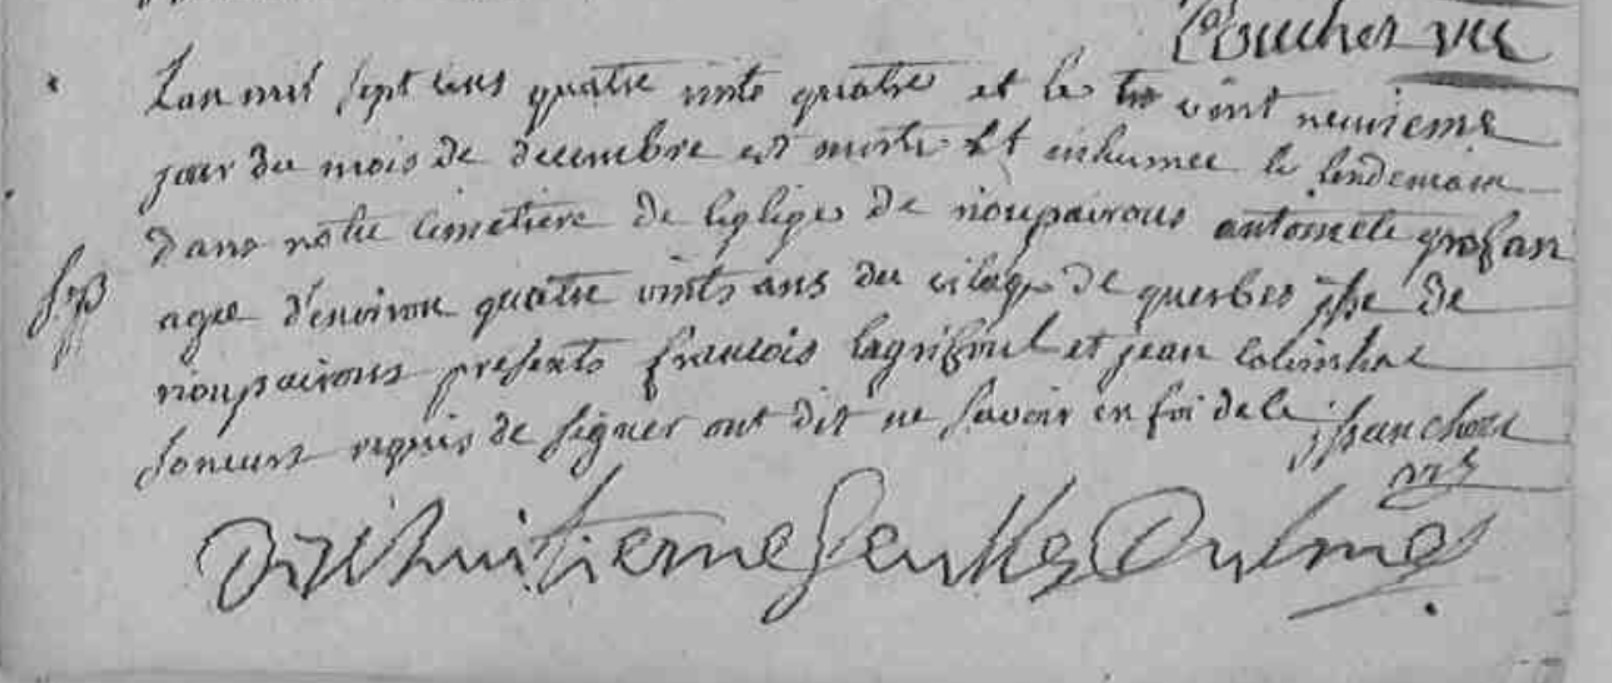 vic
Lan mil sept cens quatre vints quatre et le vint neuvieme
jour du mois de decembre est morte et inhumee le lendemain
dans notre cimetiere de leglige de rioupairous antoinete
agee d'environ quatre vints ans du vilage de querbes psse de
rioupairous presents francois lagrifoul et jean
soneurs requis de signer ont dit ne savoir en foi de ce
Dixhuitieme feuille